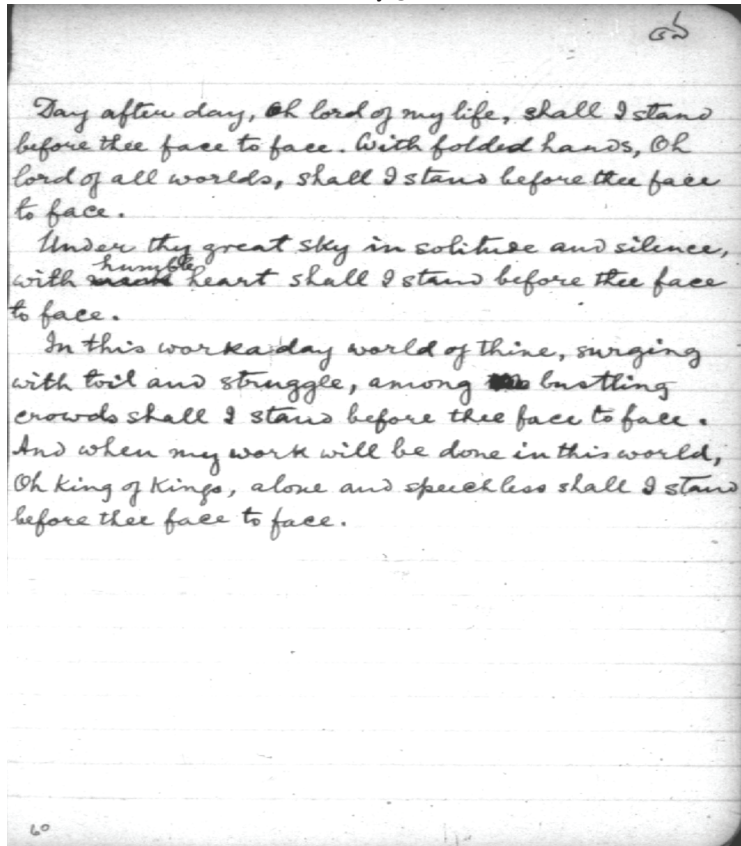 Day after day, Oh lord of my life, shall I stand
before thee face to face. With folded hands, Oh
lord of all worlds, shall I stand before thee face
to face.
Under thy great sky in solitude and silence,
with humble heart shall I stand before thee face
to face.
In this workaday world of thine, surging
with toil and struggle, among bustling
crowds shall I stand before thee face to face.
And when my work will be done in this world,
Oh King of Kings, alone and speechless shall I stand
before thee face to face.
60